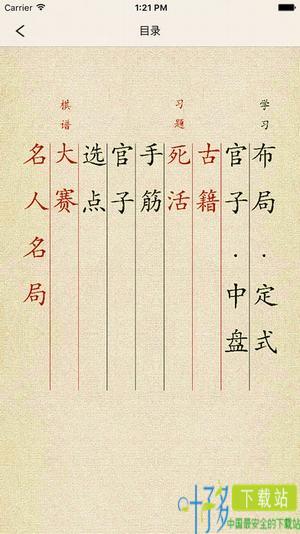 Carrier 1:21 PM
目录
学习
布局．定式
官子．中盘
习题
古籍
死活
手筋
官子
选点
棋谱
大赛
名人名局
叶子多 下载站
中国最安全的下载站